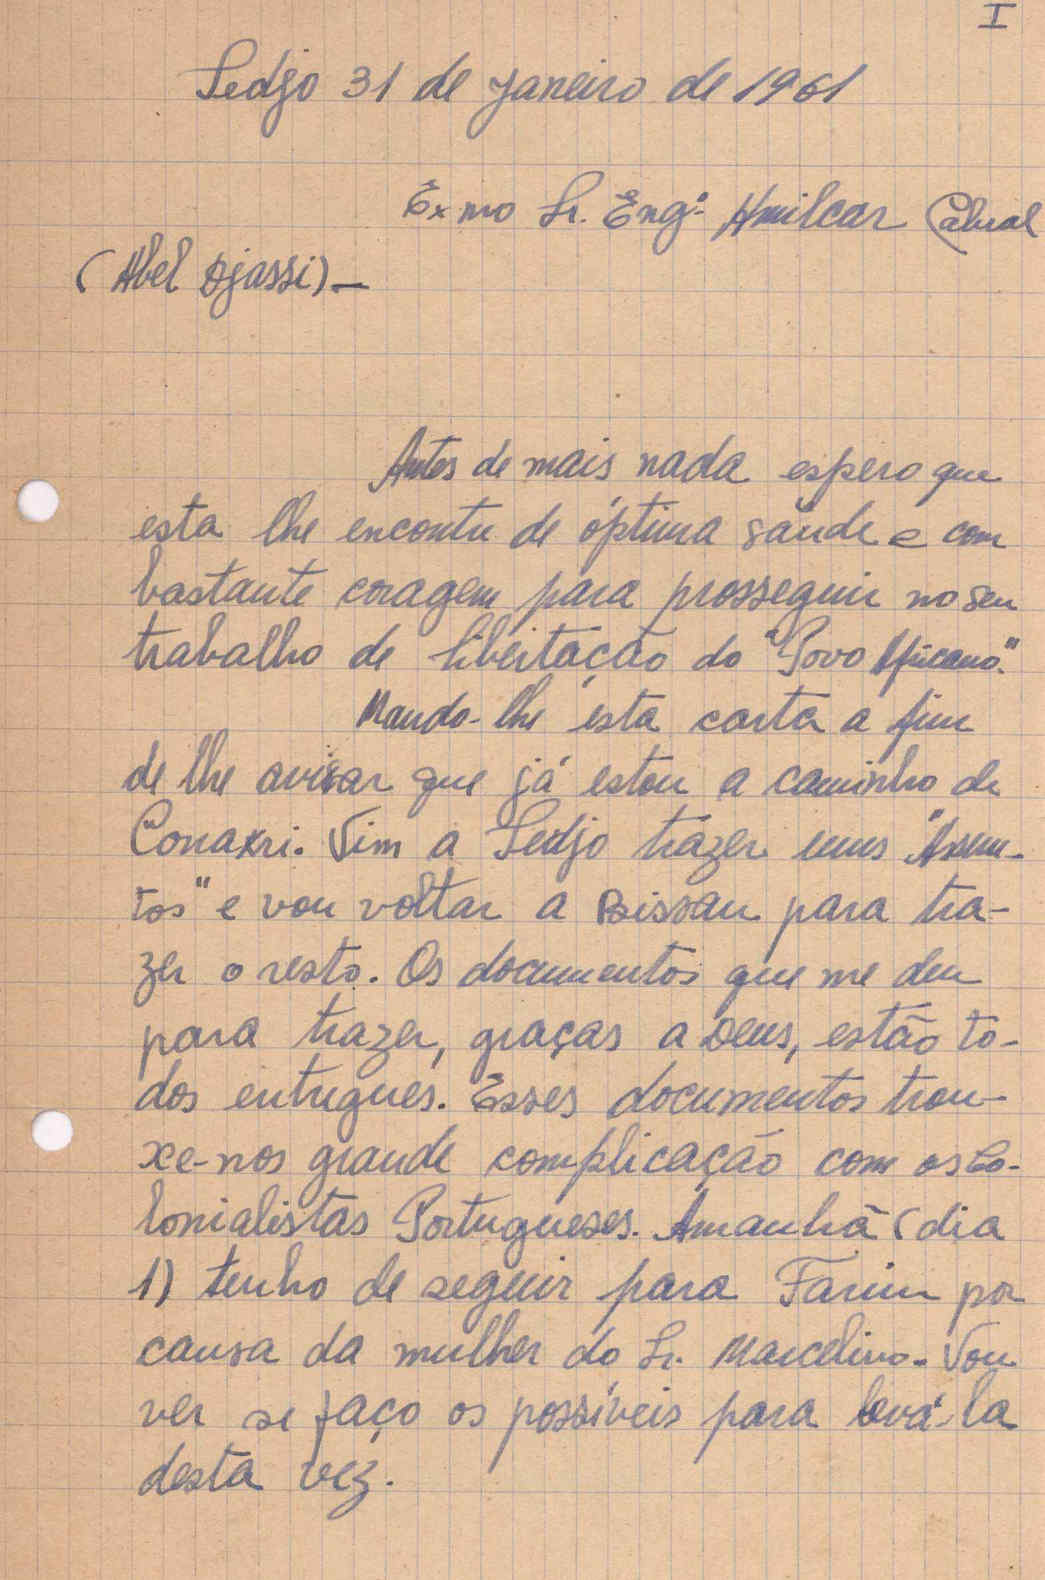 I
Sedjo 31 de Janeiro de 1961
Exmo Sr. Engº Amilcar Cabral
(Abel Djassi)-
Antes de mais nada espero que
esta lhe encontre de óptima saúde e com
bastante coragem para prosseguir no seu
trabalho de libertação do "Povo Africano."
Mando-lhe esta carta a fim
de lhe avisar que já estou a caminho de
Conakri. Vim a Sedjo trazer uns "Assun-
tos" e vou voltar a Bissau para tra-
zer o resto. Os documentos que me deu
para trazer, graças a Deus, estão to-
dos entregues. Esses documentos trou-
xe-nos grande complicação com os Co-
lonialistas Portugueses. Amanhã (dia
1) tenho de seguir para Farim por
causa da mulher do Sr. Marcelino. Vou
ver se faço os possíveis para levá-la
desta vez.